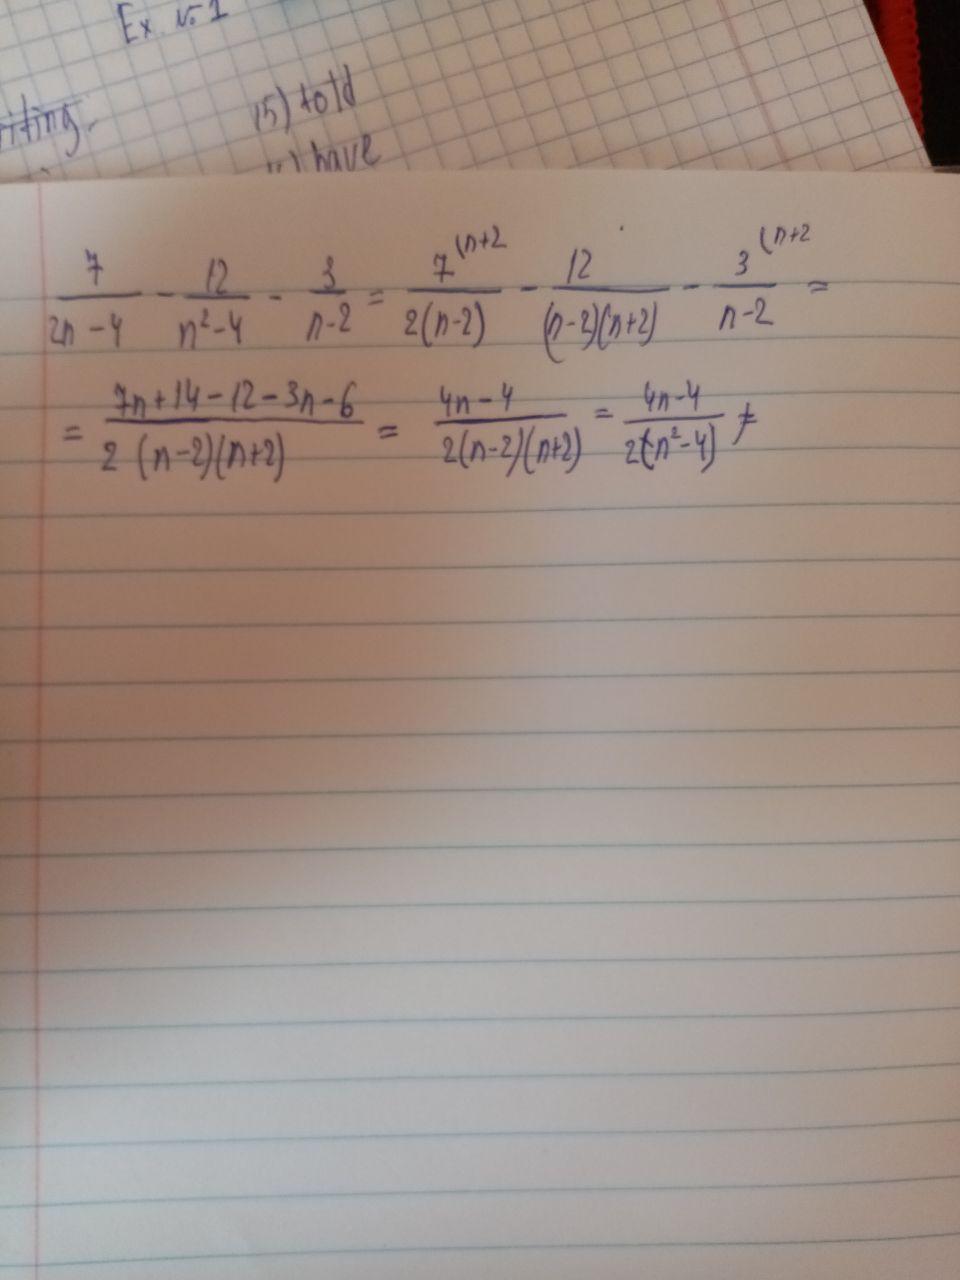 Ex. № 1
15) told
have
7/(2n-4) - 12/(n²-4) - 3/(n-2) = 7^(n+2/(2(n-2)) - 12/((n-2)(n+2)) - 3^(n+2/(n-2) =
= (7n+14-12-3n-6)/(2(n-2)(n+2)) = (4n-4)/(2(n-2)(n+2)) = (4n-4)/(2(n²-4)) ≠